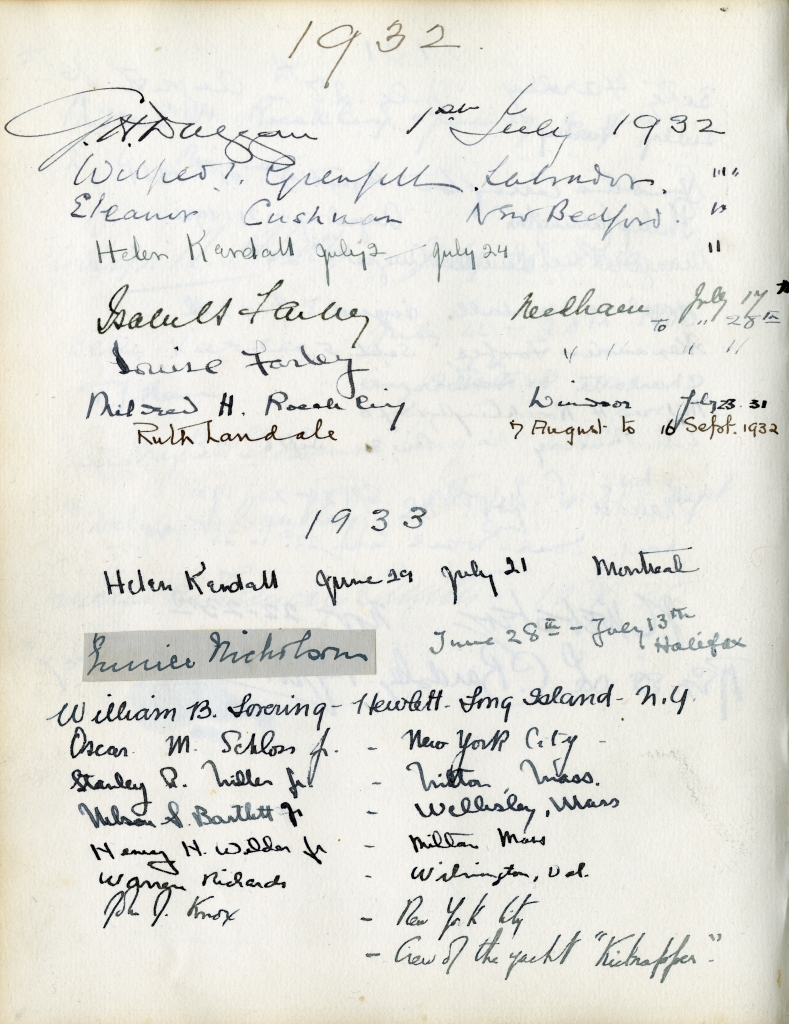 1932
G. H. Duggan 1st July 1932
Wilfred T. Grenfell. Labrador. " "
Eleanor Cushman New Bedford. "
Helen Kendall July 2 - July 24 "
Isabells Farley Needham July 17th
to " 28th
Louise Farley " " " "
Mildred H. Windsor July 23 31
Ruth Landale 7 August to 16 Sept. 1932
1933
Helen Kendall June 29 July 21 Montreal
Eunice Nicholson June 28th - July 13th
Halifax
William B. Lovering - Hewlett - Long Island - N.Y.
Oscar M. Schloss Jr. - New York City -
Stanley R. Miller Jr. - Milton, Mass.
Nelson S. Bartlett Jr - Wellesley, Mass
Henry H. Wilder Jr - Milton Mass
Warren Richards - Wilmington, Del.
J. Knox - New York City
- Crew of the yacht "Kidnapper".